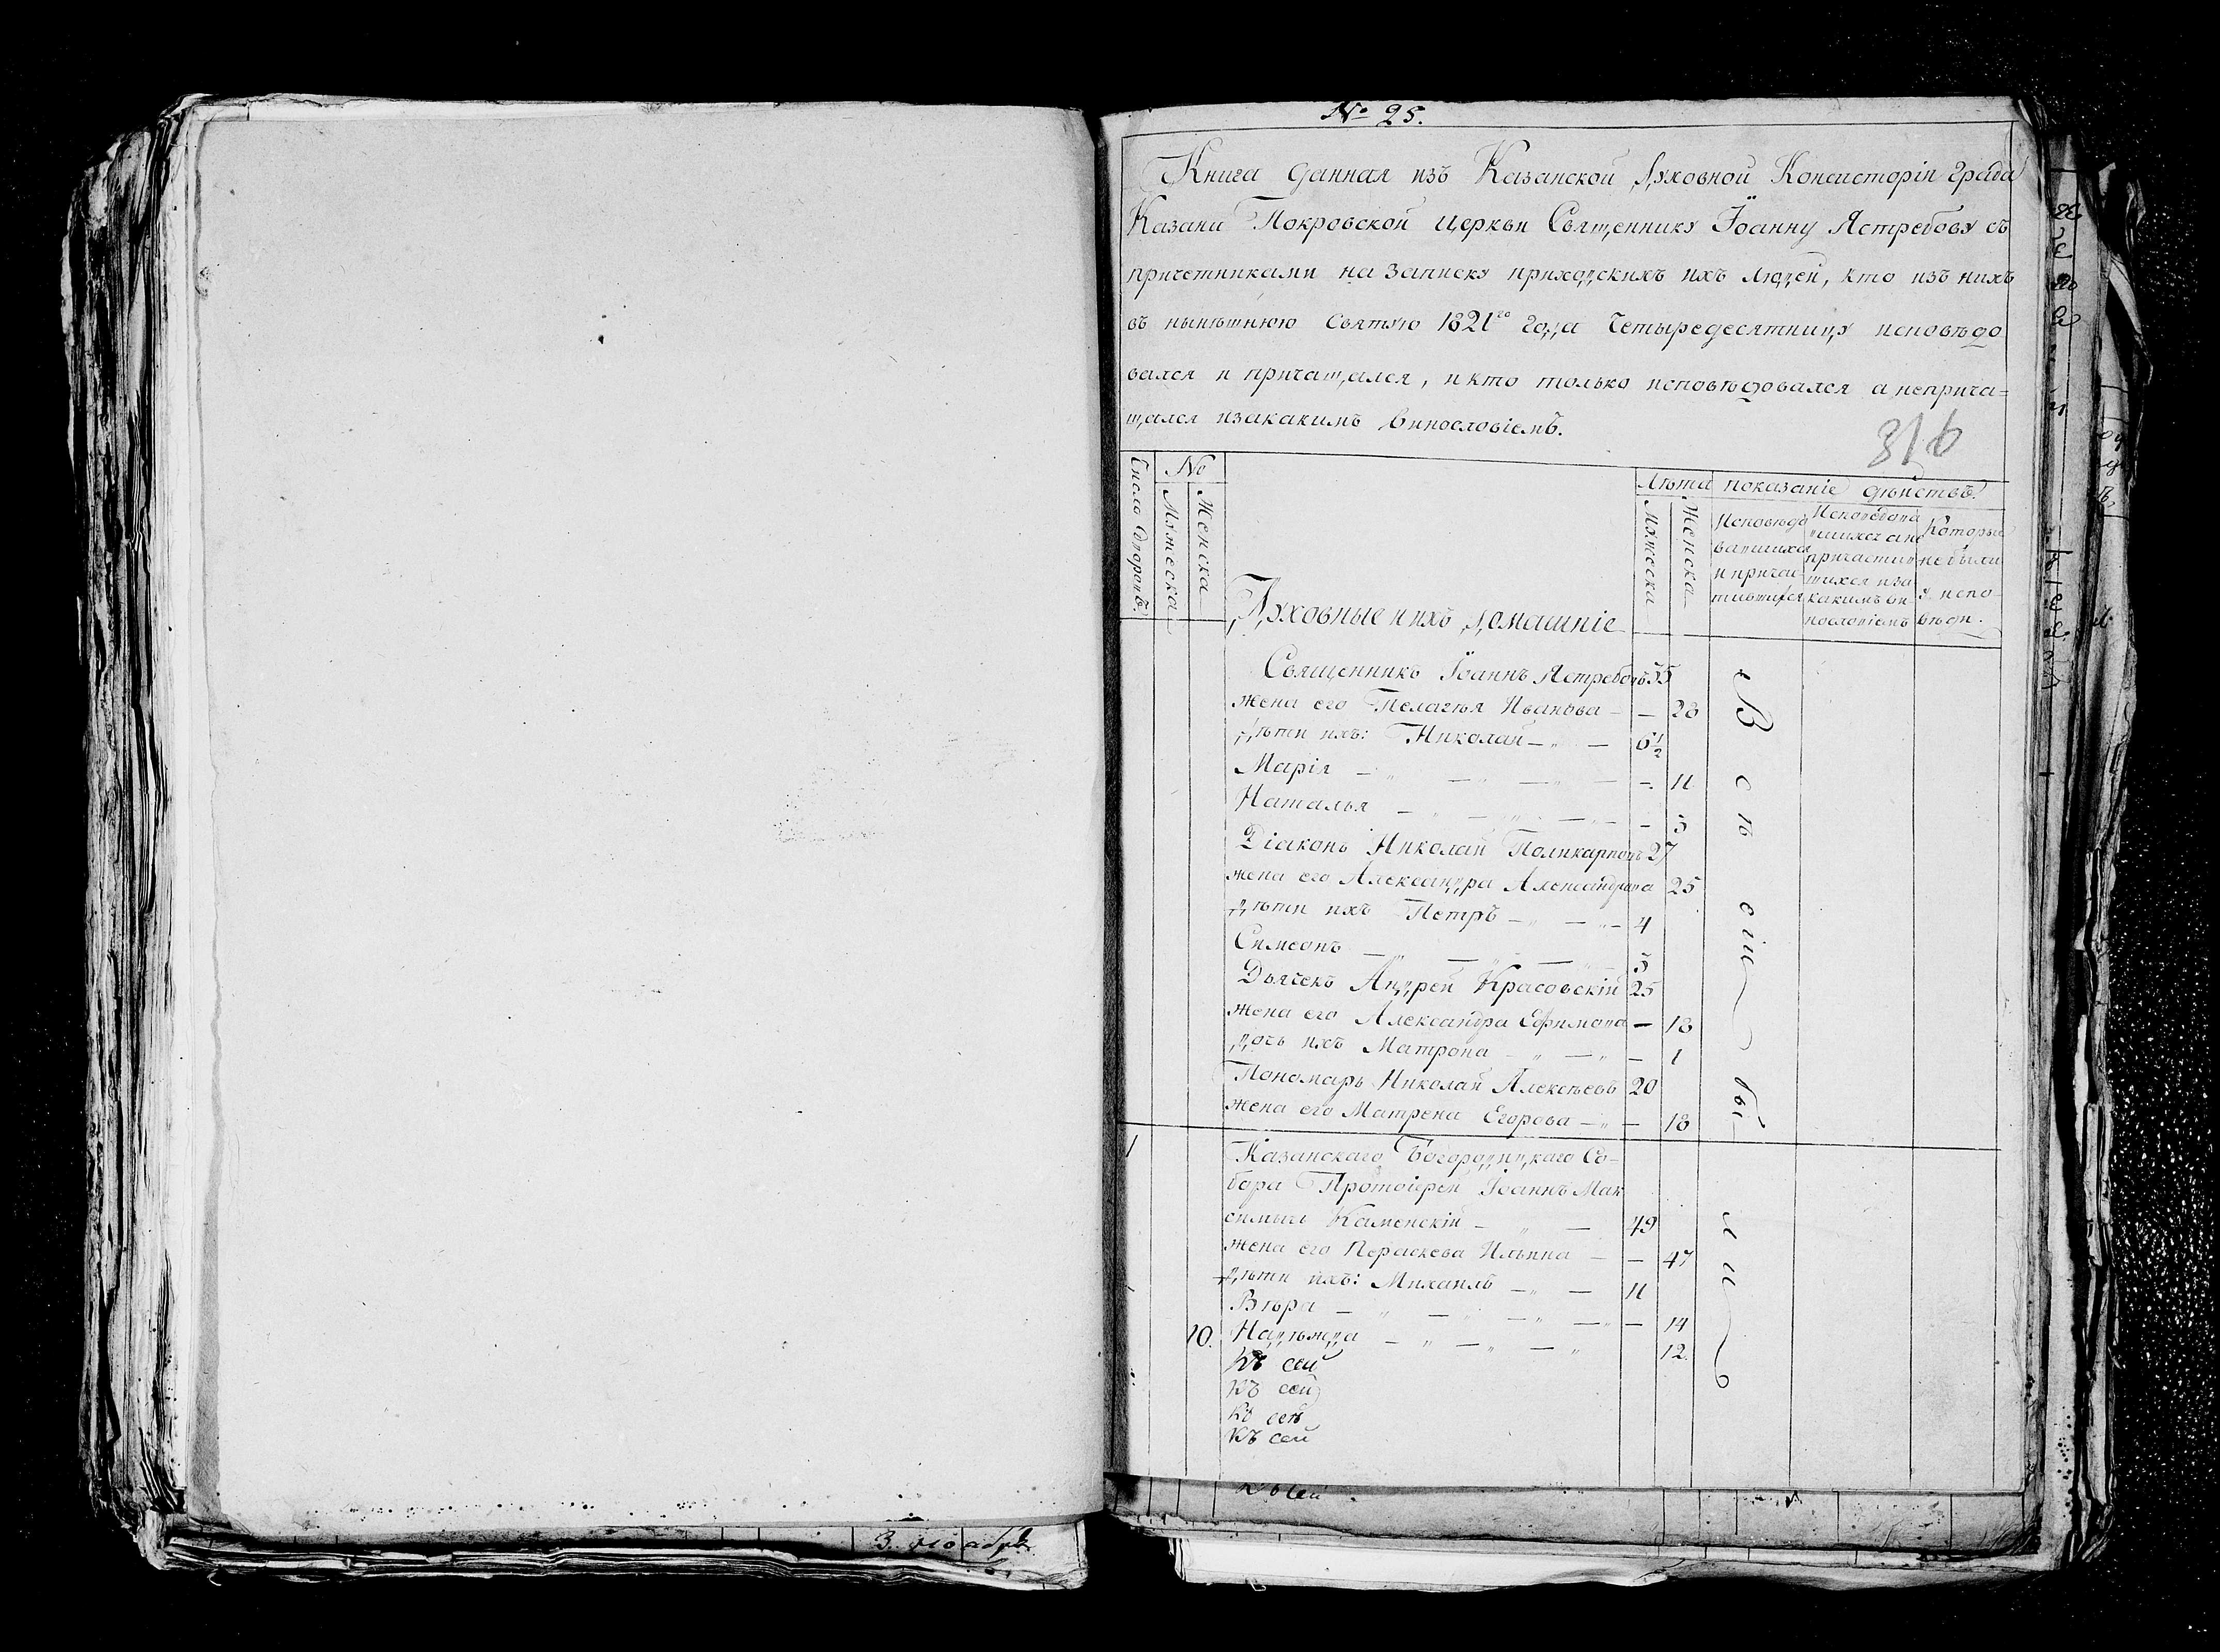 № 25.
Книга данная изъ Казанской Духовной Консисторіи града
Казани Покровской церкви Священнику Іоанну Ястребову съ
причетниками на записку приходскихъ ихъ людей, кто изъ нихъ
въ нынѣшнюю святую 1821го года Четыредесятницу исповѣдо
вался и причащался, и кто только исповѣдовался а неприча=
щался изакакимъ винословіемъ.
316
Число дворовъ.
№
Мужеска
Женска
Лѣта
Мужеска
Женска
показаніе дѣйствъ.
Исповѣдо
вавшихся
и прича-
тившихся
Исповѣдова
вшихся а не
причастив
шихся и за
какимъ ви-
нословіемъ
Которые
не были
у испо-
вѣди.
Духовные и ихъ домашніе
Священникъ Іоаннъ Ястребовъ 35
жена его Пелагѣя Иванова — — 28
дѣти ихъ: Николай — „ — 6½
Марія — „ — „ — „ — — 11
Наталья — „ — „ — „ — — 5
Діаконъ Николай Поликарповъ 27
жена его Александра Александрова 25
дѣти ихъ Петръ — „ — „ — 4
Симеонъ — „ — „ — „ — 3
Дьячекъ Андрей Красовскій 25
жена его Александра Ефимова — 18
дочь ихъ Матрона — „ — „ — 1
Пономарь Николай Алексѣевъ 20
жена его Матрена Егорова — „ — 18
Всѣ сіи бы
1 Казанскаго Богородицкаго Со-
бора Протоіерей Іоаннъ Мак
симычь Каменскій — „ — 49
жена его Параскева Ильина — — 47
дѣти ихъ: Михаилъ — „ — 11
Вѣра — „ — „ — „ — „ — 14
10. Надѣжда — „ — „ — „ 12.
къ сей
къ сей
къ сей
къ сей
ли
къ сей
3. ноабря